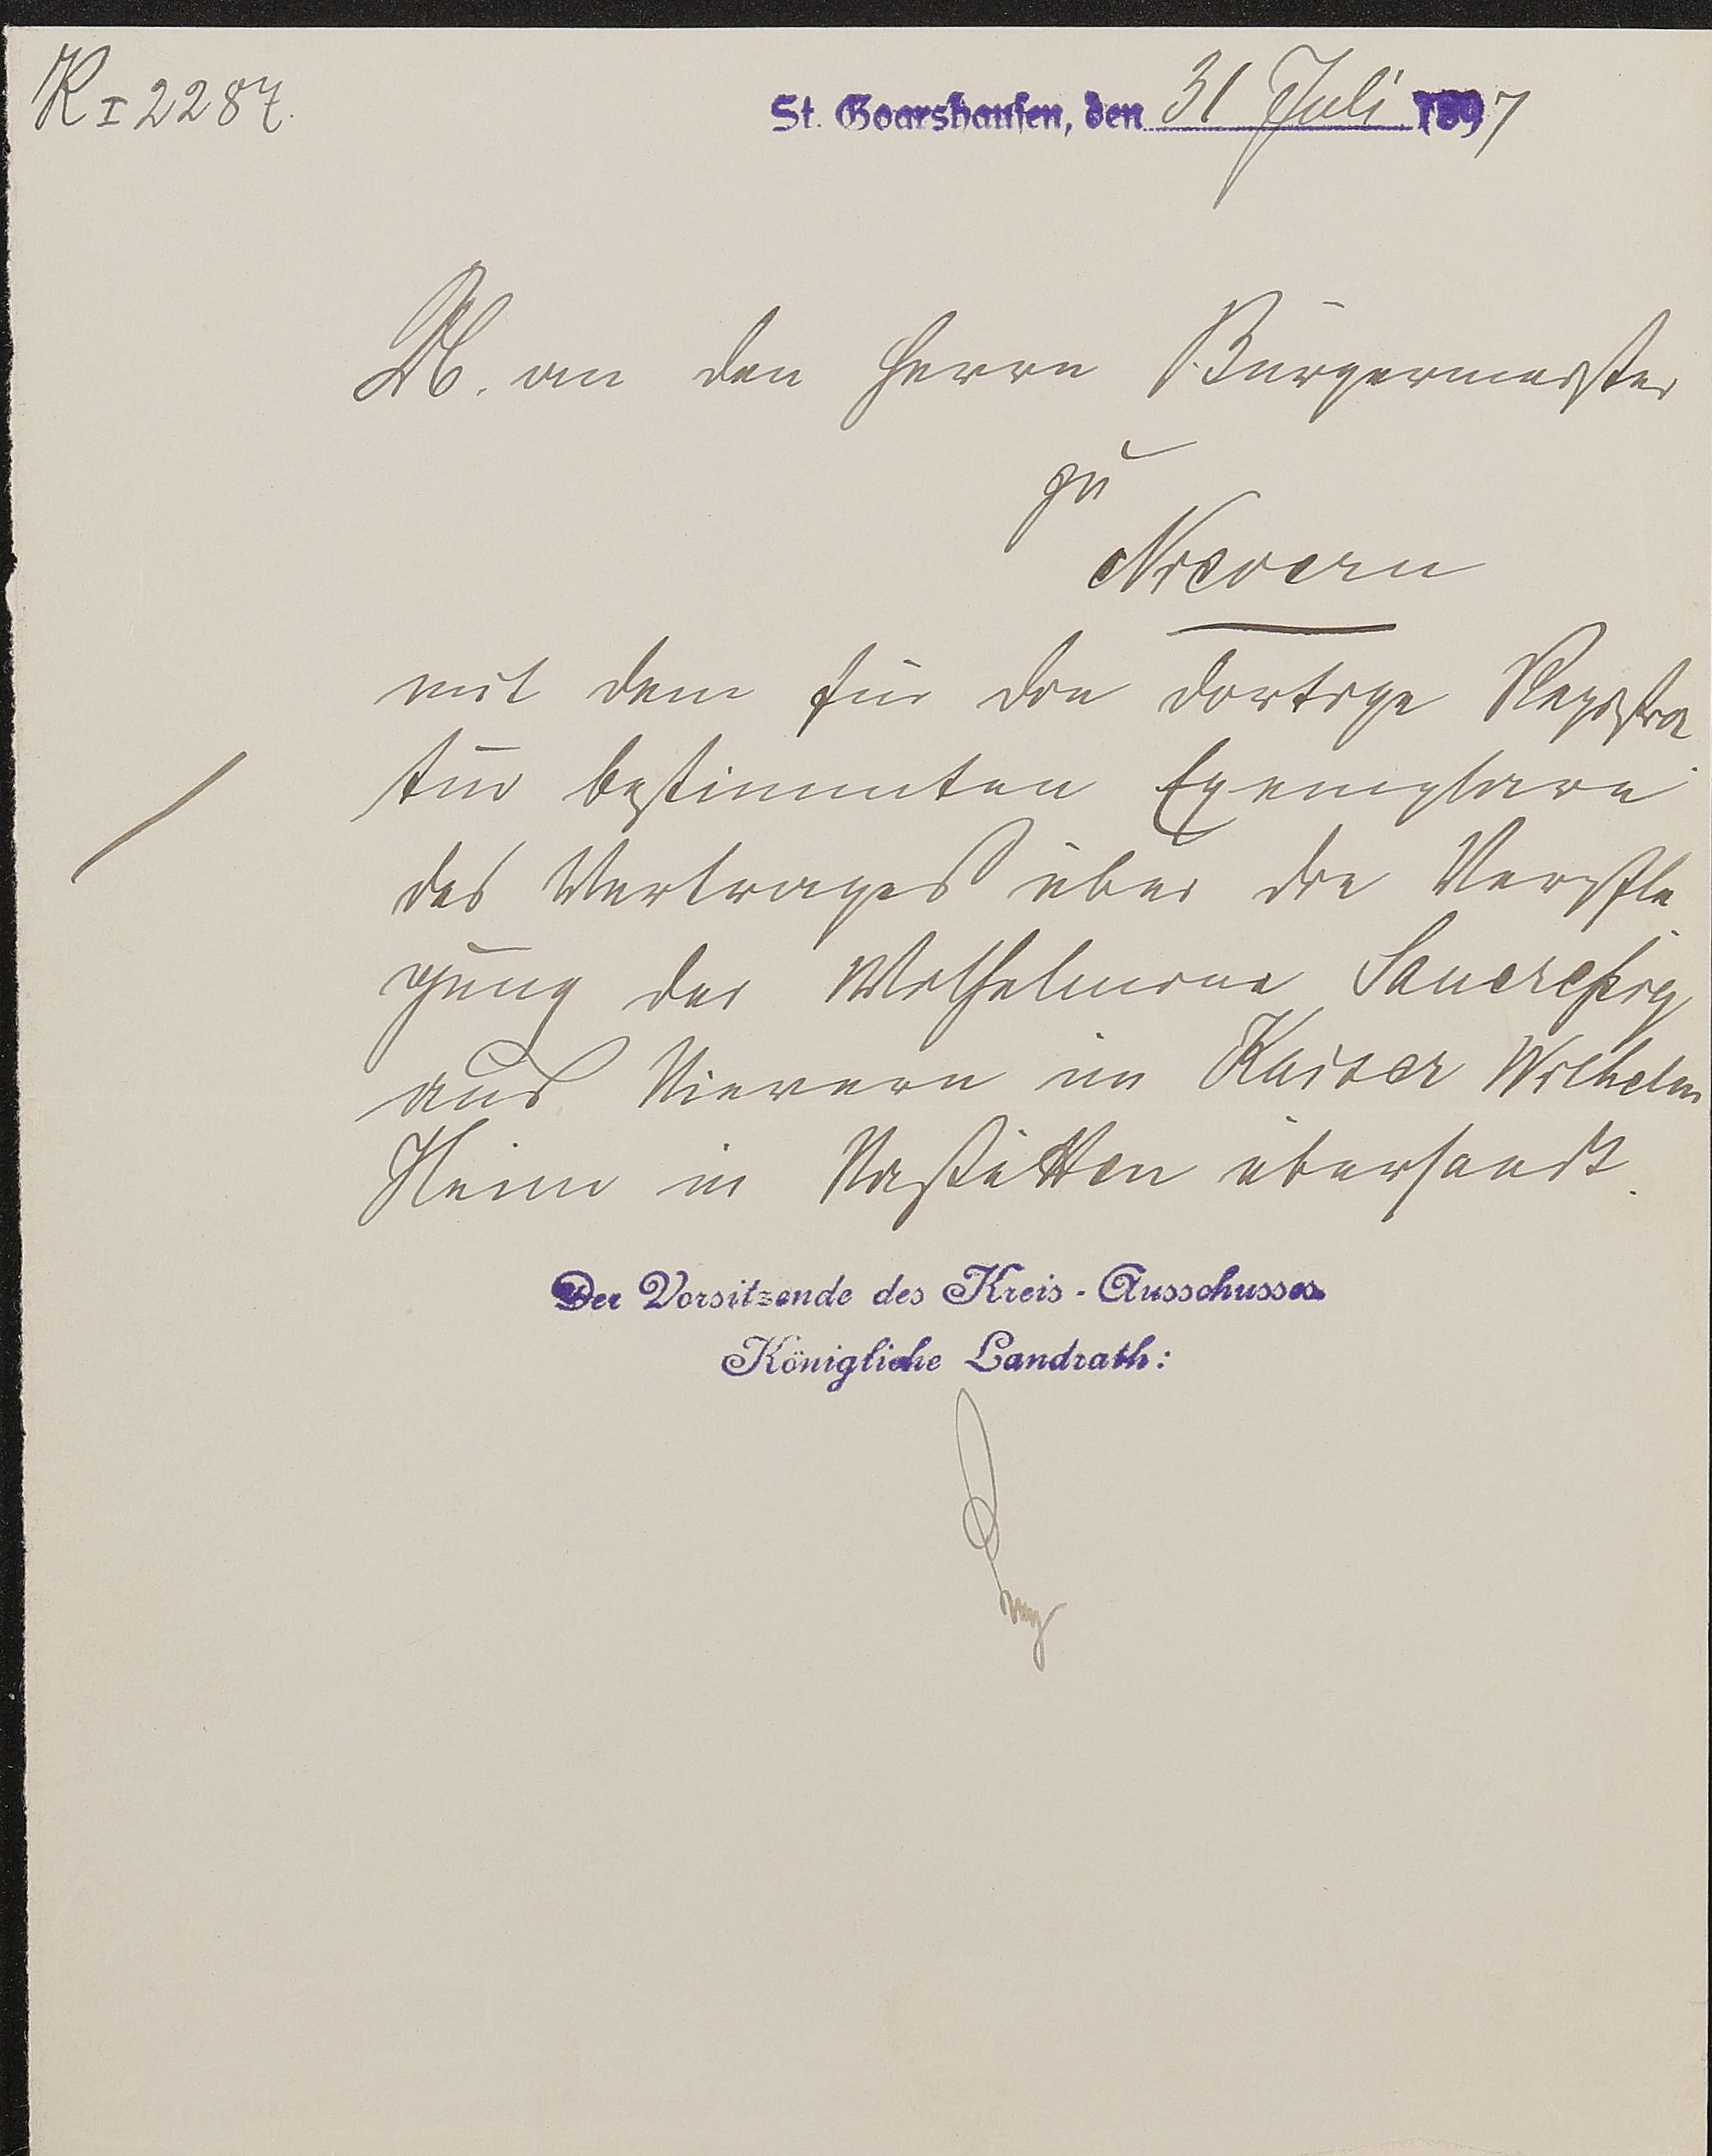 K I 2287.
St. Goarshausen, den 31 Juli 1897
U. an den Herrn Bürgermeister
zu
Nievern
mit dem für die dortige Registra
tur bestimmten Exemplare
des Vertrages über die Verpfle
gung der Wilhelmine Sauereßig
aus Nievern im Kaiser Wilhelm
Heim in Nastätten übersandt.
Der Vorsitzende des Kreis-Ausschusses
Königliche Landrath: